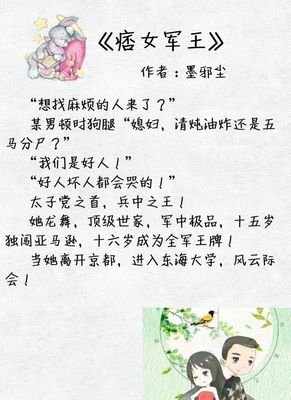 《痞女军王》
作者：墨邪尘
“想找麻烦的人来了？”
某男顿时狗腿“媳妇，清炖油炸还是五
马分尸？”
“我们是好人！”
“好人坏人都会哭的！”
太子党之首，兵中之王！
她龙舞，顶级世家，军中极品，十五岁
独闯亚马逊，十六岁成为全军王牌！
当她离开京都，进入东海大学，风云际
会！